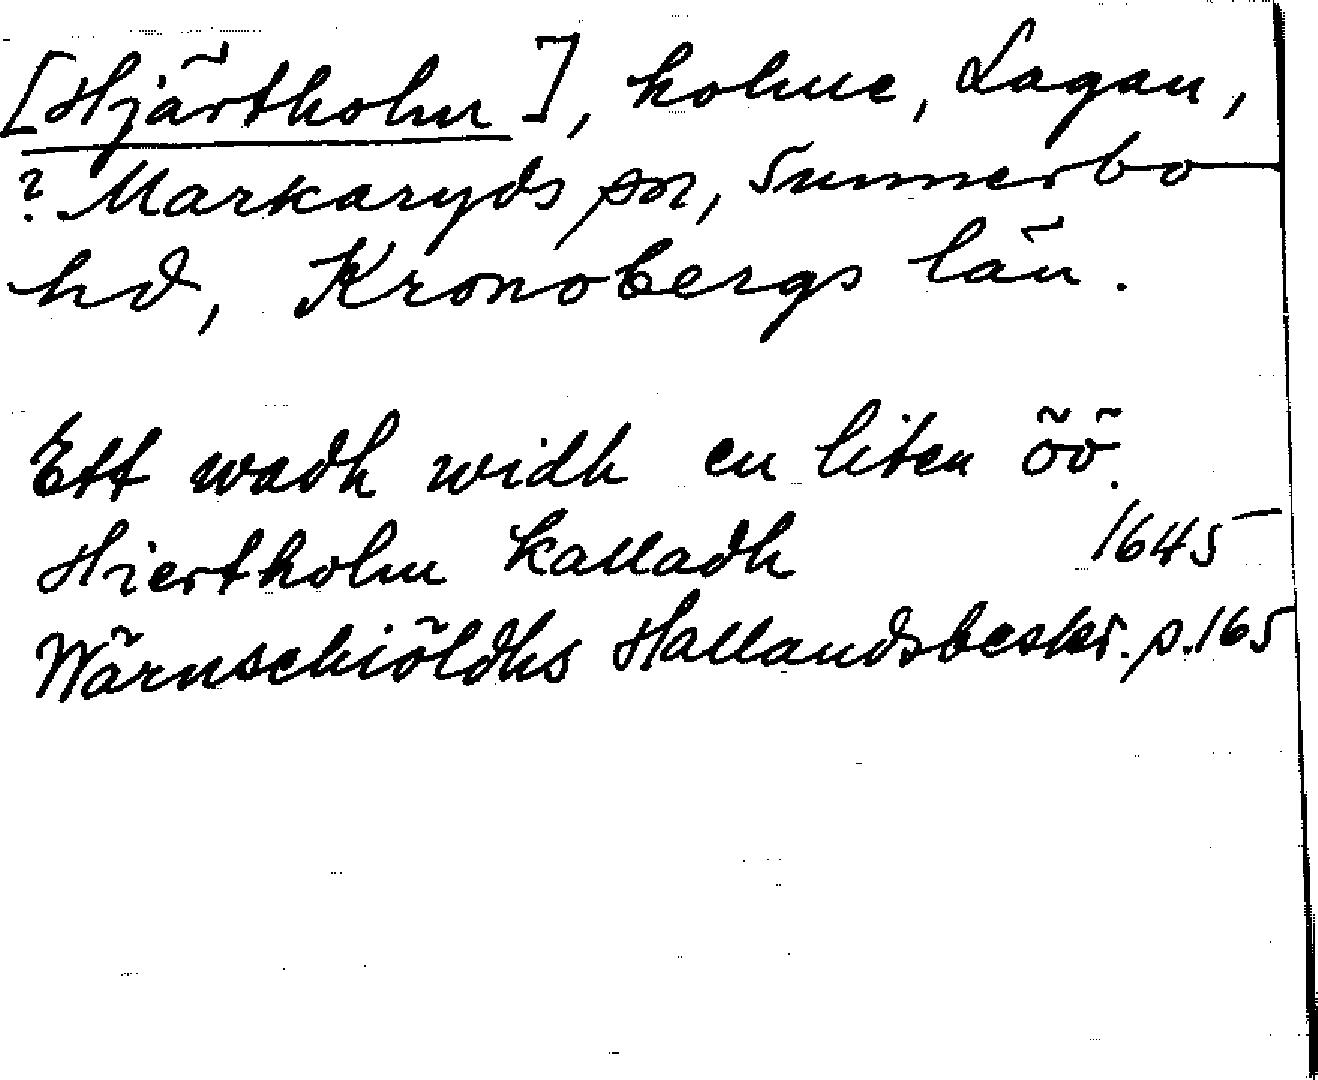 [Hjärtholm], holme, Lagan,
? Markaryds sn, Sunnerbo
hd, Kronobergs län.
Ett wadh widh en liten öö.
Hiertholm kalladh 1645
Wärnschiöldhs Hallandsbeskr. p. 165